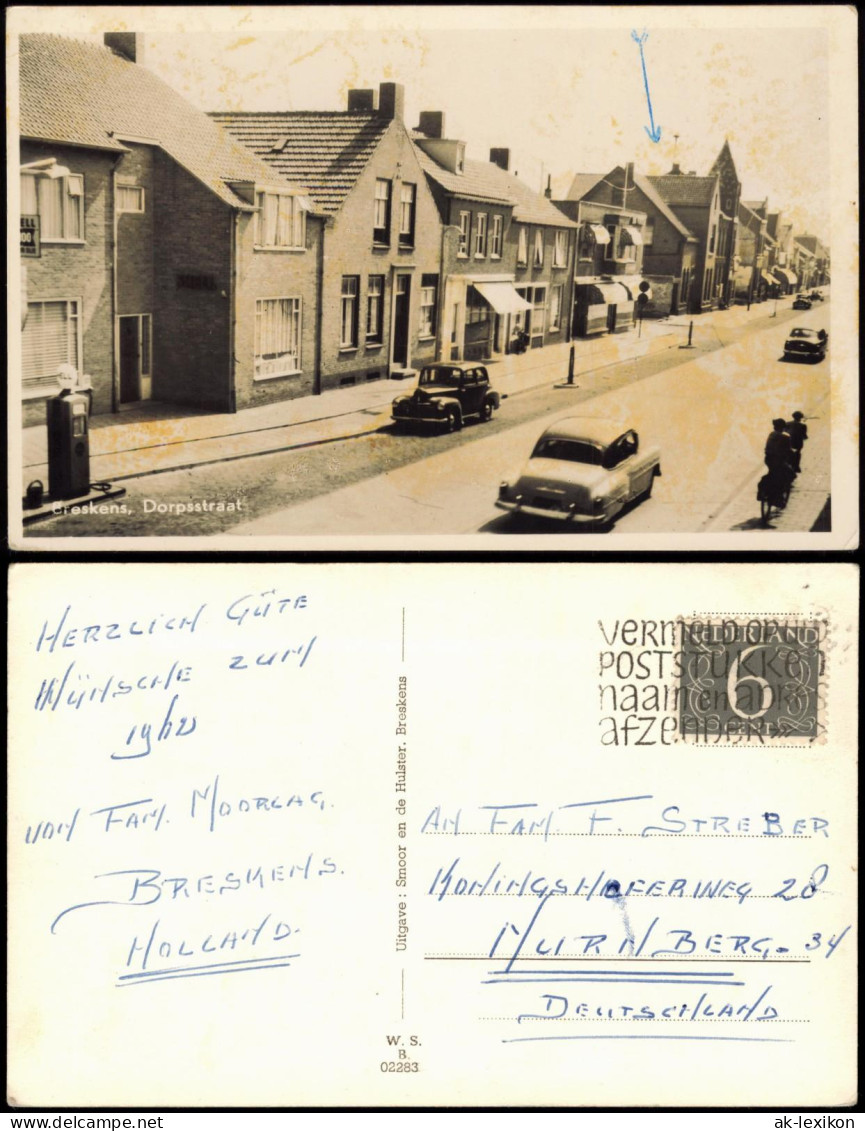 ELL
Breskens, Dorpsstraat
HERZLICH GÜTE
WÜNSCHE ZUM
1962
VON FAM. MOORLAG.
BRESKENS.
HOLLAND.
Uitgave: Smoor en de Hulster, Breskens
W. S.
B.
02283
VERMELD OP UW
POSTSTUKKEN
naam en adres
afzender
NEDERLAND
6
CENT
AN FAM. F. STREBER
KONINGSHOFERWEG 28
NURNBERG. 34
DEUTSCHLAND
ak-lexikon